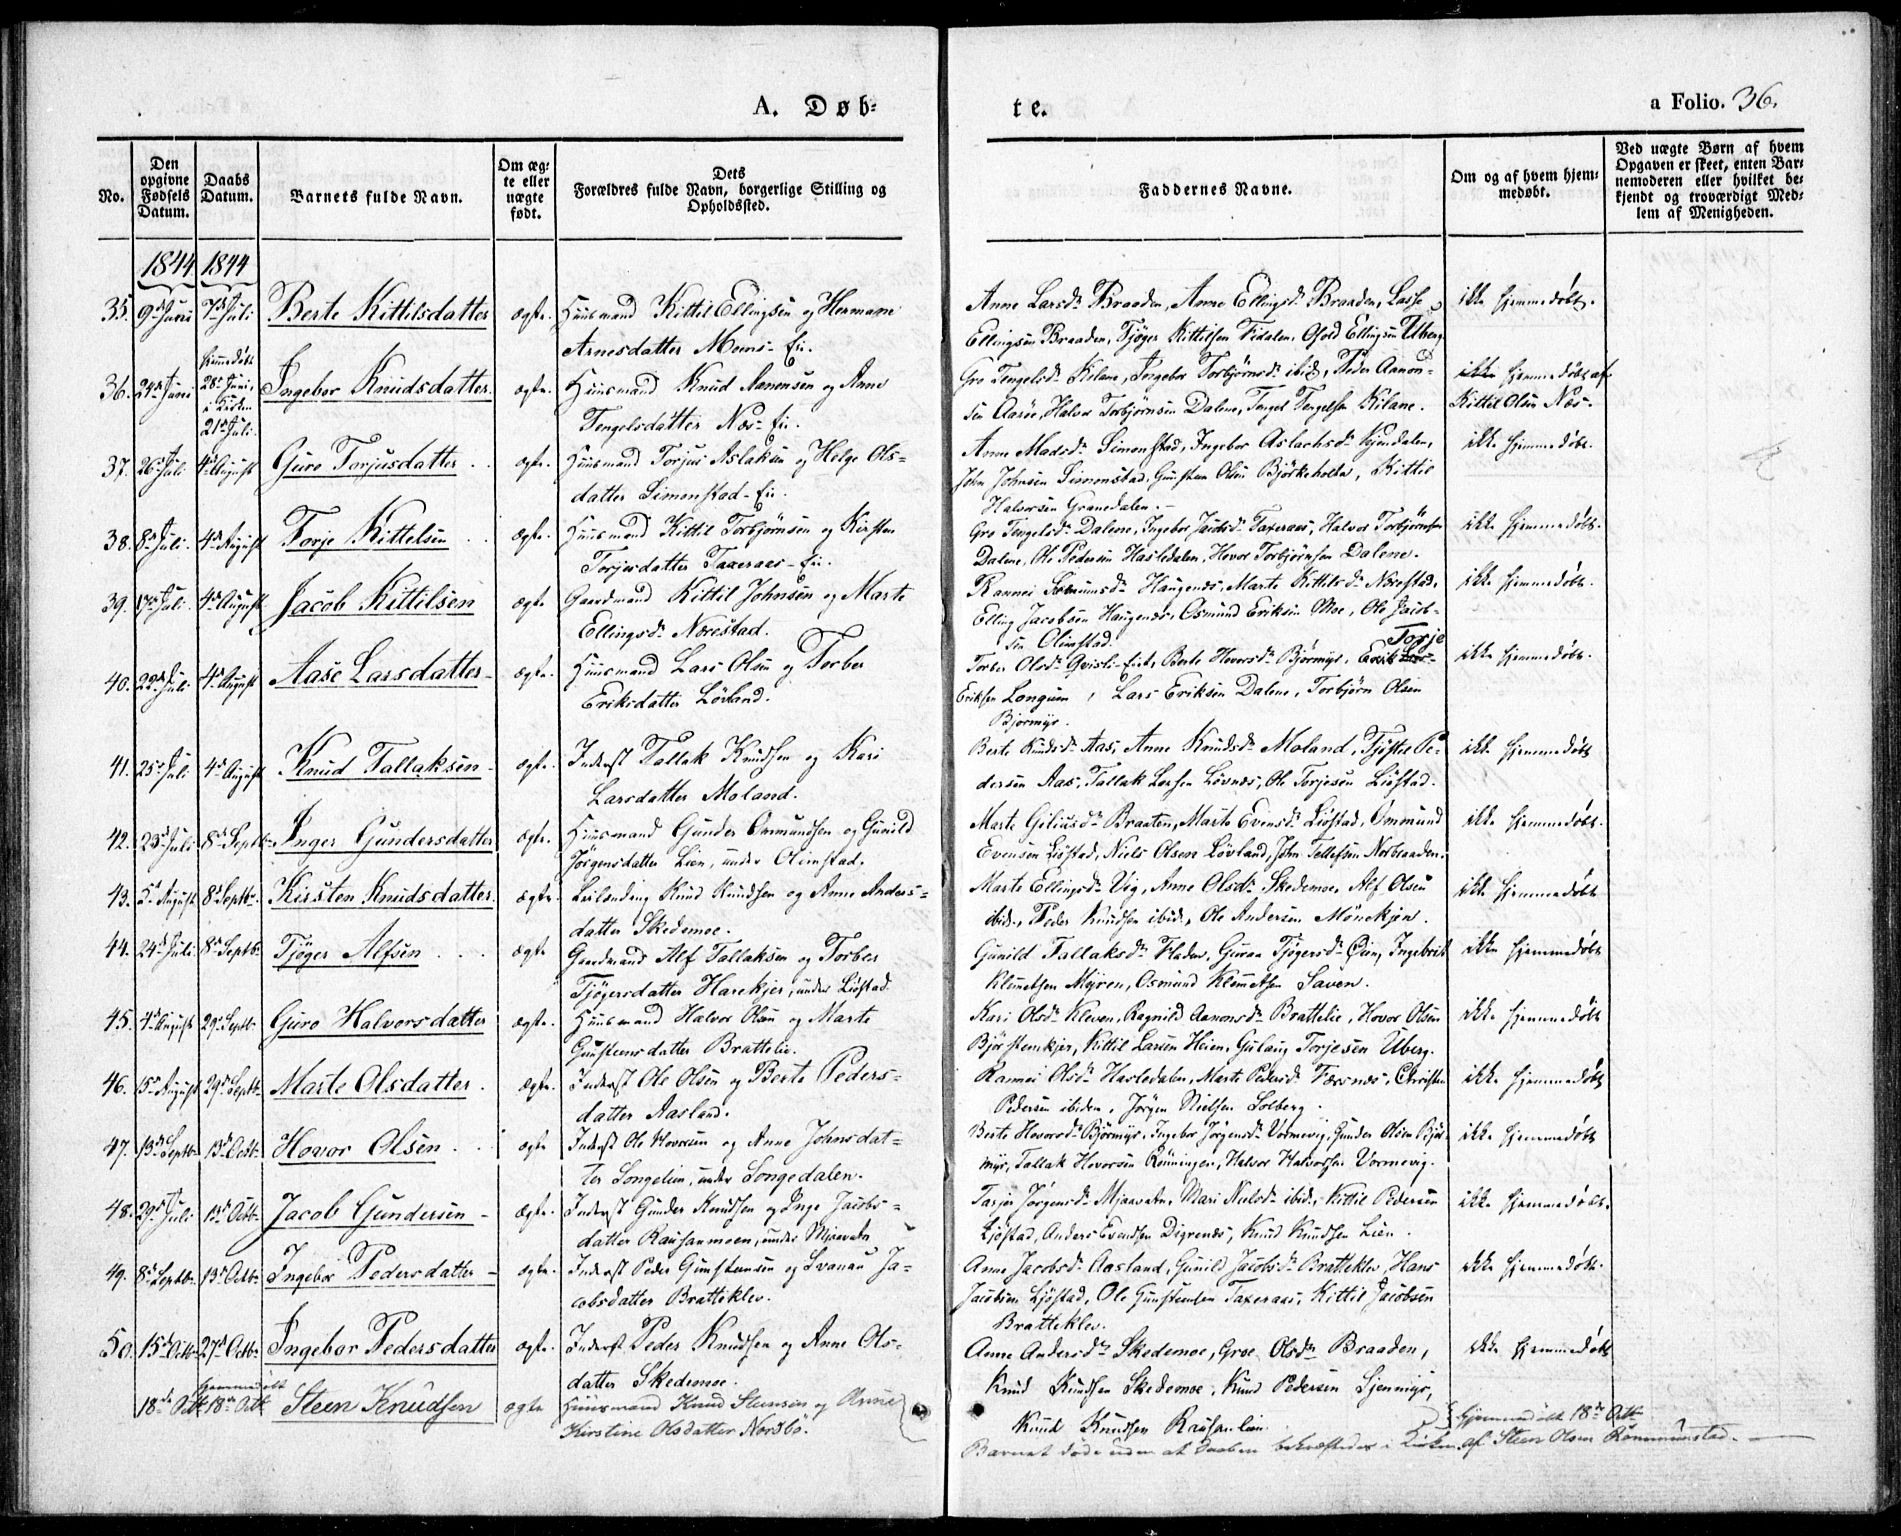 A. Døb-
te.
a Folio. 36.
No.
Den opgivne Fødsels Datum.
Daabs Datum.
Barnets fulde Navn.
Om ægte eller uægte født.
Dets Forældres fulde Navn, borgerlige Stilling og Opholdssted.
Faddernes Navne.
Om og af hvem hjemmedøbt.
Ved uægte Børn af hvem Opgaven er skeet, enten Barnemoderen eller hvilket bekjendt og troværdigt Medlem af Menigheden.
1844 1844
35. 9de Juni 7de Juli Berte Kittilsdatter ægte. Huusmand Kittil Ellingsen og Hermane
Arnesdatter Moens-Eie.
Anne Larsdr Braaden, Anne Ellingsdr Braaden, Lasse
Ellingsen Braaden, Tjøger Kittilsen Fidalen, Ellingsen Uberg.
ikke hjemmedøbt.
36. 24de Juni hjemmedøbt 28de Juni, i Kirken 21de Juli. Ingebor Knudsdatter. ægte. Huusmand Knud Aanensen og Anne
Tengelsdatter Næs-Eie.
Gro Tengelsdr Kilane, Ingebor Torbjørnsdr ibid, Peder Aanon-
sen Aarøe, Halvor Torbjørnsen Dalene, Tengel Tengelsen Kilane.
hjemmedøbt af
Kittil Olsen Næs.
37. 26de Juli 4de August Guro Torjusdatter ægte. Huusmand Torjus Aslaksen og Helge Ols-
datter Simonstad-Eie.
Anne Madsdr Simonstad, Ingebor Aslaksdr
John Johnsen Simonstad, Gunsteen Olsen Bjørkeholdt, Kittil
Halvorsen Granedalen.
ikke hjemmedøbt.
38. 8de Juli. 4de August Torje Kittelsen ægte. Huusmand Kittil Torbjørnsen og Kirsten
Torjesdatter Taxeraas-Eie.
Gro Tengelsdr Dalene, Ingebor Jacobsdr Taxeraas, Halvor Torbjørnsen
Dalene, Ole Pedersen Hasledalen, Hovor Torbjørnsen Dalene.
ikke hjemmedøbt.
39. 17de Juli. 4de August Jacob Kittilsen ægte Gaardmand Kittil Johnsen og Marte
Ellingsdr Nærestad.
Rannei Haugenes, Marte Kittilsdr Nærestad,
Elling Jacobsen Haugenes, Osmund Eriksen Moe, Ole Jacob-
sen Olimstad.
ikke hjemmedøbt.
40. 22de Juli 4de August Aase Larsdatter ægte. Huusmand Lars Olsen og Torber
Eriksdatter Løvland.
Torje
Torber Olsdr Berte Hovorsdr Bjørmyr,
Eriksen Longum, Lars Eriksen Dalene, Torbjørn Olsen
Bjørmyr.
ikke hjemmedøbt.
41. 25de Juli 4de August Knud Tallaksen ægte. Inderst Tallak Knudsen og Kari
Larsdatter Moland.
Berte Knudsdr Aas, Anne Knudsdr Moland, Pe-
dersen Aas, Tallak Larsen Løvnes, Ole Torjesen Liøstad.
ikke hjemmedøbt
42. 23de Juli 8de Septbr. Inger Gundersdatter ægte. Huusmand Gunder Ommundsen og Gunild
Jørgensdatter Lien, under Olimstad.
Marte Braaten, Marte Evensdr Liøstad, Ommund
Evensen Liøstad, Niels Olsen Løvland, John Tellefsen Norbraaden.
ikke hjemmedøbt.
43. 5te August 8de Septbr. Kirsten Knudsdatter. ægte. Leilænding Knud Knudsen og Anne Anders-
datter Skedemoe.
Marte Ellingsdr Vig, Anne Olsdr Skedemoe, Alf Olsen
ibid., Peder Knudsen ibid., Ole Andersen Mönekjer.
ikke hjemmedøbt
44. 24de Juli 8de Septbr. Tjøger Alfsen ægte Gaardmand Alf Tallaksen og Torber
Tjøgersdatter Harekjer, under Liøstad.
Gunild Tallaksdr Fladen, Tjøgersdr Ingebret
Klemetsen Myren, Osmund Klemetsen Saven.
ikke hjemmedøbt
45. 4de August 29de Septbr. Guro Halvorsdatter ægte. Huusmand Halvor Olsen og Marte
Gunsteensdatter Brattelie.
Kari Olsdr Kleven, Ragnild Aanonsdr Brattelie, Hovor Olsen
Kittil Larsen Heien, Gulaug Torjesen Uberg.
ikke hjemmedøbt
46. 15de August 29de Septbr. Marte Olsdatter. ægte. Inderst Ole Olsen og Berte Peders-
datter Aasland.
Rannei Olsdr Hasledalen, Marte Pedersdr Færsnes, Christen
Pedersen ibidem, Jørgen Nielsen Solberg.
ikke hjemmedøbt
47. 13de Septbr. 13de Octbr. Hovor Olsen. ægte Inderst Ole Hovorsen og Anne Johnsdat-
ter Songelien, under Songedalen.
Berte Hovorsdr Bjørmyr, Ingebor Jørgensdr Vormevig, Gunder Olsen Bjør-
myr, Tallak Hovorsen Rønningen, Halvor Halvorsen Vormevig.
ikke hjemmedøbt
48. 29de Juli 13de Octbr. Jacob Gundersen ægte. Inderst Gunder Knudsen og Inge Jacobs-
datter under Mjaavatn
Jørgensdr Mjaavatn, Mari Nielsdr ibid., Kittil Pedersen
Ljøstad, Anders Evendsen Digrenes, Knud Knudsen Lien.
ikke hjemmedøbt.
49. 8de Septbr. 13de Octbr. Ingebor Pedersdatter ægte. Inderst Peder Gunsteensen og Svanau Ja-
cobsdatter Bratteklev.
Anne Jacobsdr Aasland, Gunild Jacobsdr Bratteklev, Hans
Jacobsen Ljøstad, Ole Gunsteensen Taxeraas, Kittil Jacobsen
Bratteklev.
ikke hjemmedøbt.
50. 15de Octbr. 27de Octbr. Ingebor Pedersdatter ægte. Inderst Peder Knudsen og Anne Ols-
datter Skedemoe.
Anne Andersdr Skedemoe, Groe Olsdr Braaden,
Knud Knudsen Skedemoe, Knud Pedersen
Knud Knudsen
ikke hjemmedøbt
18de Octb. hjemmedøbt 18de Octb. Steen Knudsen ægte Huusmand Knud Steensen og Anne
Kirstine Olsdatter Nordbø.
hjemmedøbt 18de Octb.
Barnet døde uden at Daaben bekræftedes i Kirken. af Steen Olsen Rømmunstad.